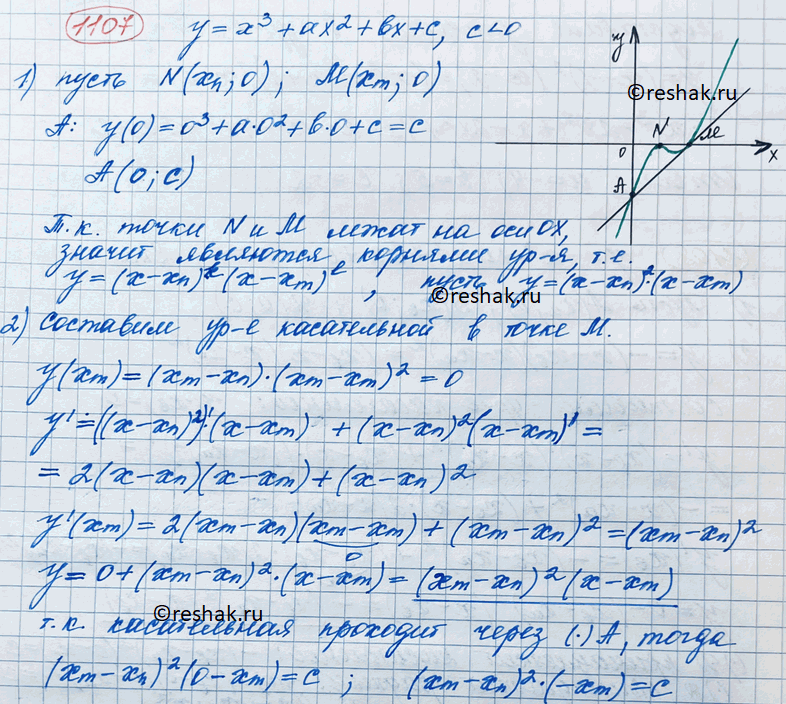 1107 y = x³ + ax² + bx + c, c<0
1) пусть N(xn; 0); M(xm; 0)
A: y(0) = 0³ + a·0² + b·0 + c = c
A(0; c)
y
©reshak.ru
N M
0 x
A
Т.к. точки N и M лежат на оси OX,
значит являются корнями ур-я, т.е.
y = (x-xn)²·(x-xm)², пусть y = (x-xn)²·(x-xm)
©reshak.ru
2) Составим ур-е касательной в точке M.
y(xm) = (xm-xn)·(xm-xm)² = 0
y' = ((x-xn)²)'·(x-xm) + (x-xn)²(x-xm)' =
= 2(x-xn)(x-xm) + (x-xn)²
y'(xm) = 2(xm-xn)(xm-xm) + (xm-xn)² = (xm-xn)²
0
y = 0 + (xm-xn)²·(x-xm) = (xm-xn)²(x-xm)
©reshak.ru
т.к. касательная проходит через (·) A, тогда
(xm-xn)²(0-xm) = c; (xm-xn)²·(-xm) = c